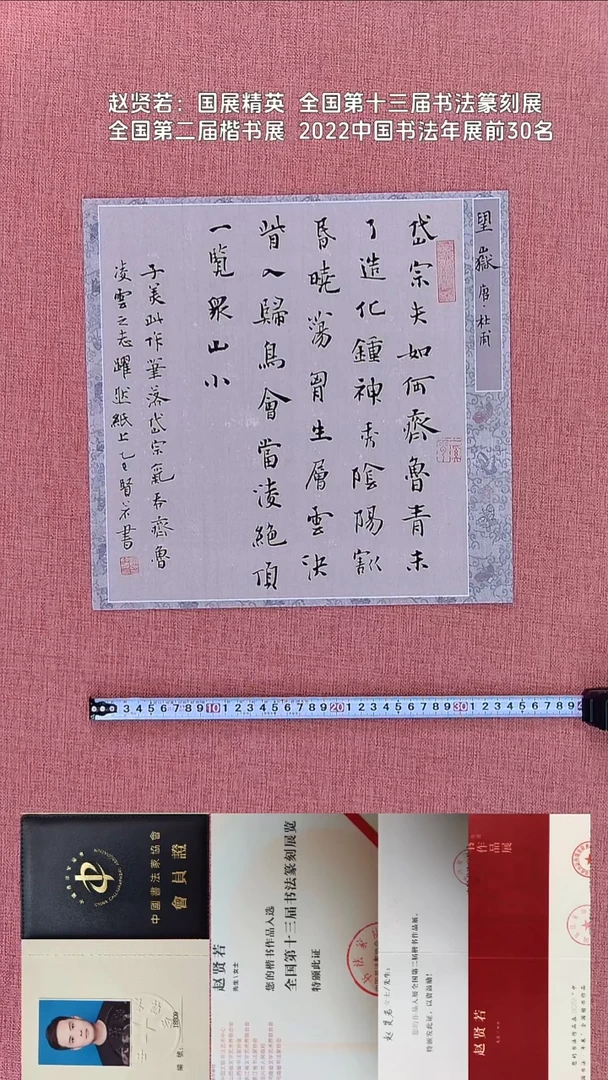 赵贤若：国展精英 全国第十三届书法篆刻展
全国第二届楷书展 2022中国书法年展前30名
望嶽 唐·杜甫
岱宗夫如何齊魯青未
了造化鍾神秀陰陽割
昏曉蕩胷生層雲決
眥入歸鳥會當凌絕頂
一覽眾山小
子美此作筆落岱宗氣吞齊魯
凌雲之志躍然紙上乙巳賢若書
2 3 4 5 6 7 8 9 10 1 2 3 4 5 6 7 8 9 20 1 2 3 4 5 6 7 8 9 30 1 2 3 4 5 6 7 8 9
中國書法家協會
會員證
編號：
赵贤若
先生\女士
您的楷书作品入选
全国第十三届书法篆刻展览
特颁此证
您的作品入展全国第二届楷书作品展。
特颁发此证，以资鼓励！
书作品展
赵贤若